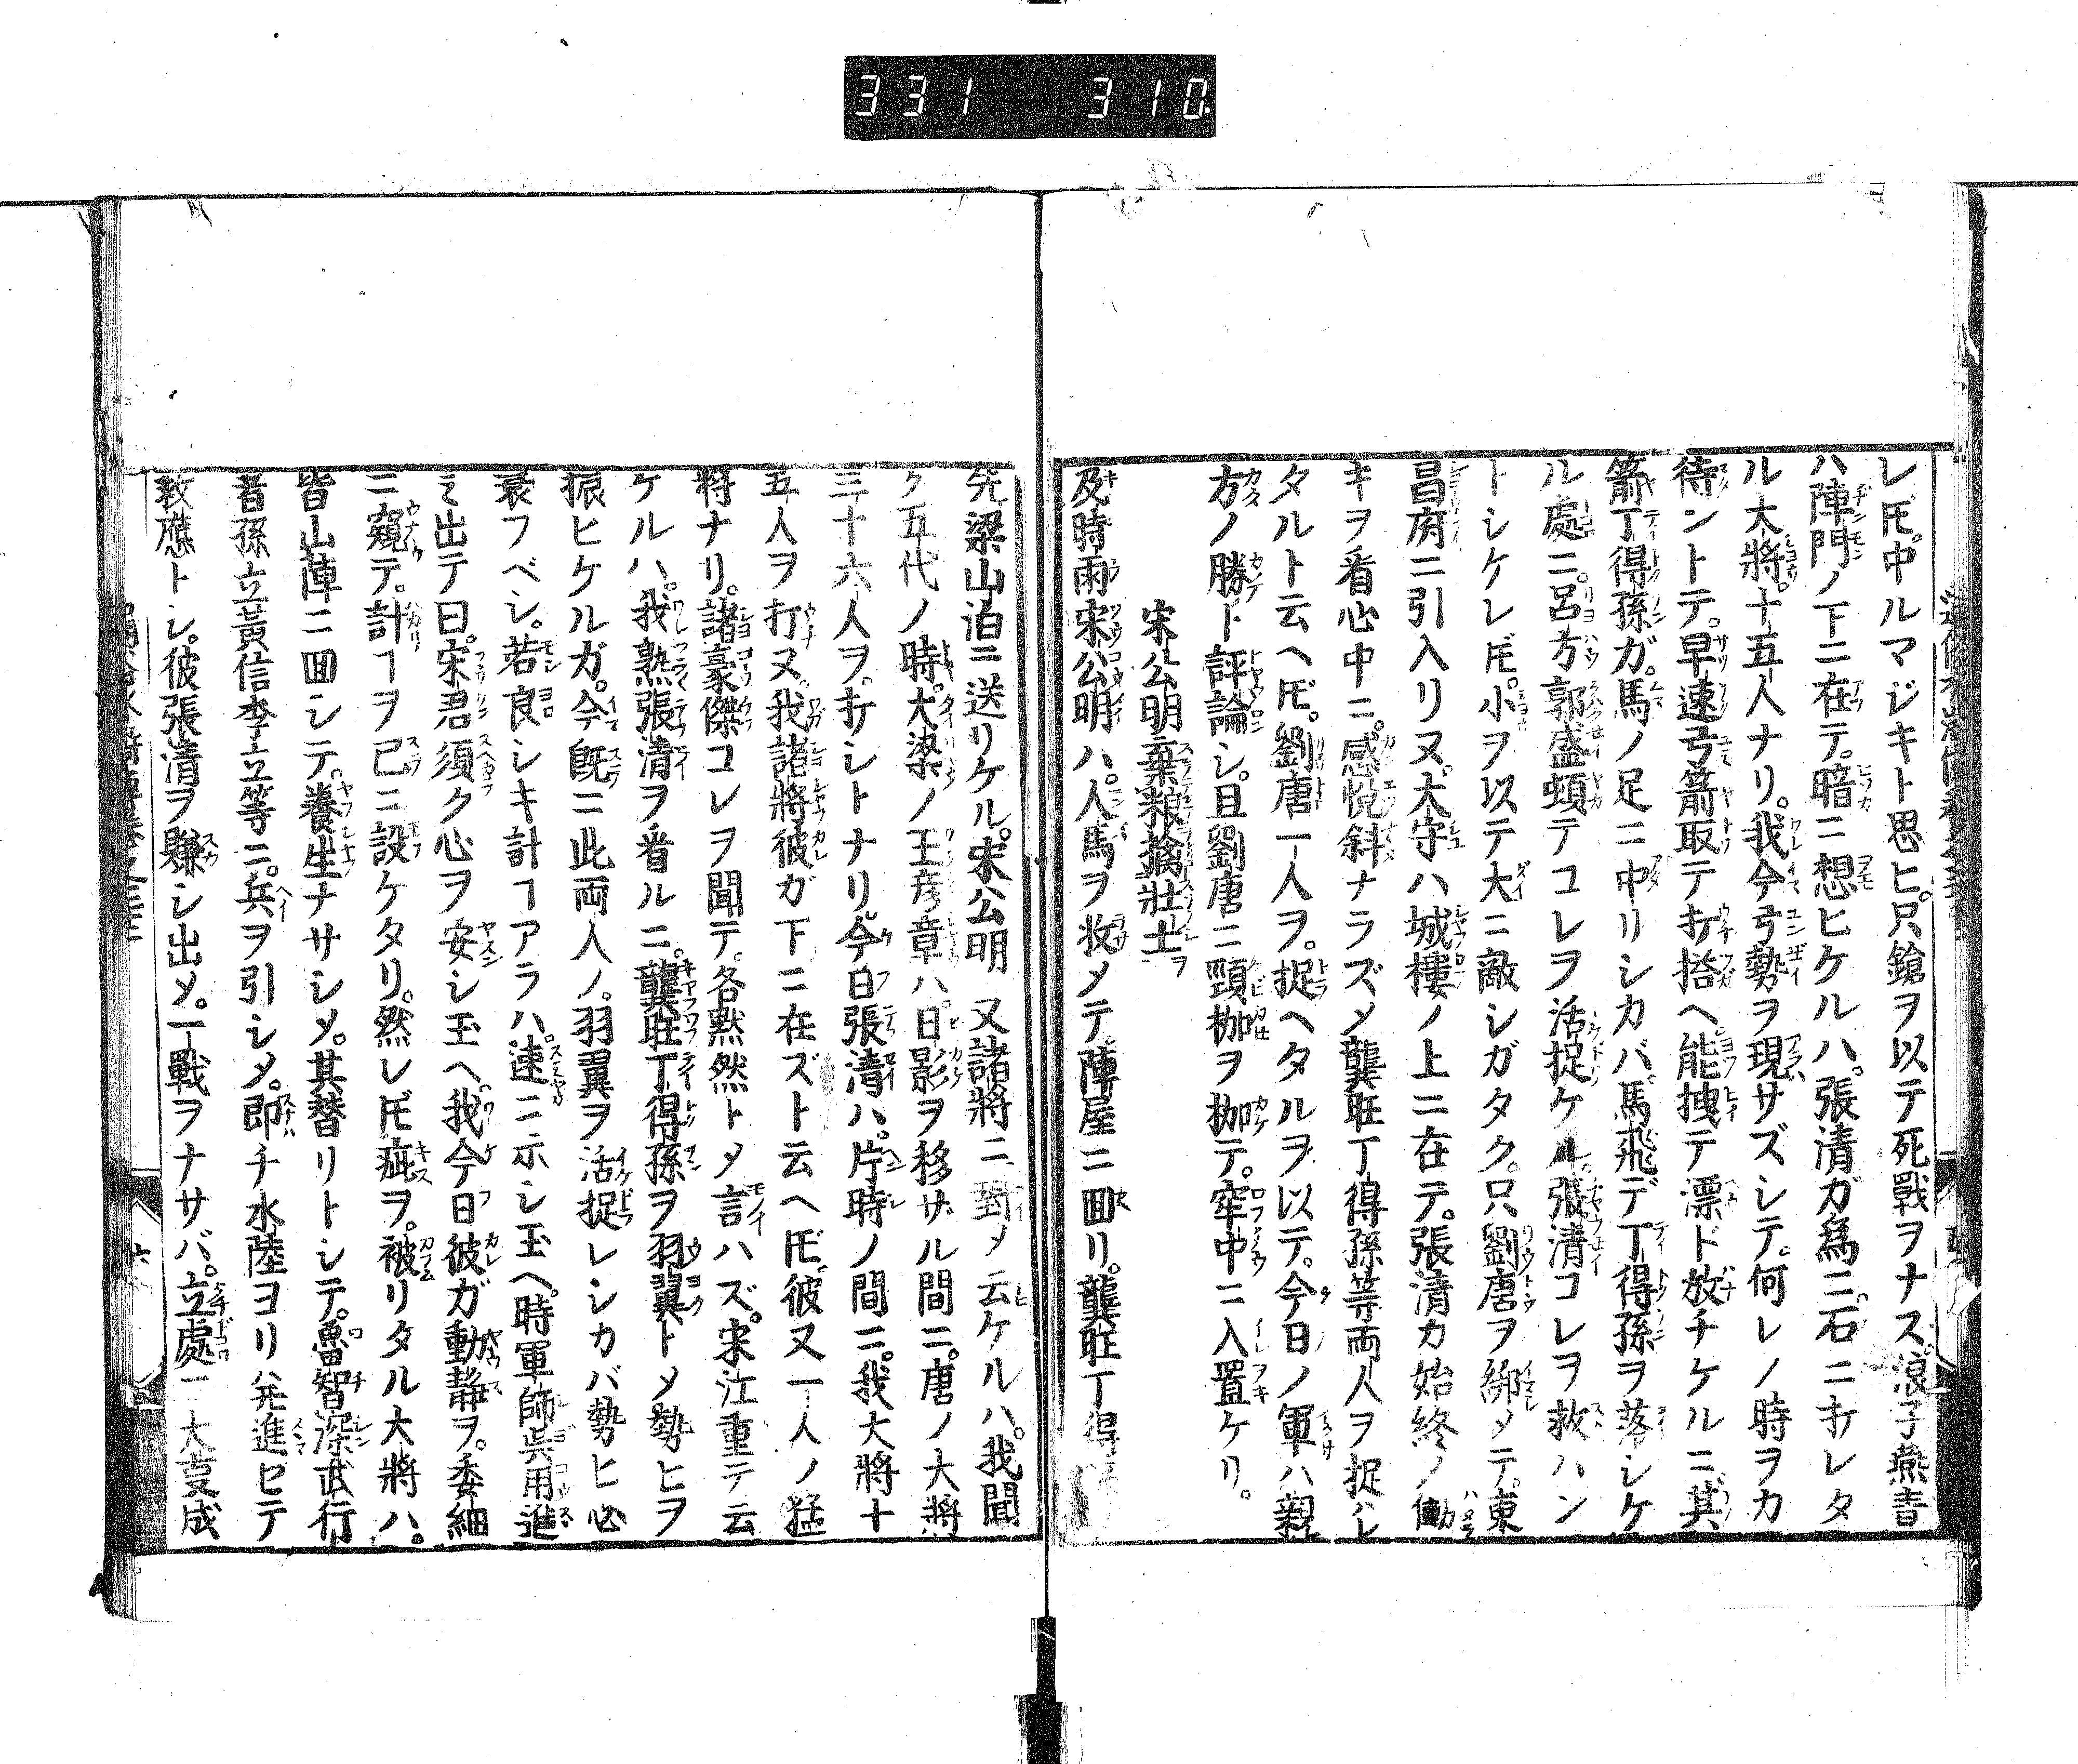 331 310
レ𪜈。中ルマジキト思ヒ。只鎗ヲ以テ死戰ヲナス。浪子燕青
ハ陣門ノ下ニ在テ。暗ニ想ヒケルハ。張清ガ為ニ石ニ打レタ
ル大將。十五人ナリ。我今弓勢ヲ現サズシテ。何レノ時ヲカ
待ントテ。早速弓箭取テ打搭ヘ能拽テ漂ド放チケルニ。其
箭丁得孫ガ。馬ノ足ニ中リシカバ。馬飛デ丁得孫ヲ落シケ
ル處ニ。呂方郭盛頓テコレヲ活捉ケル。張清コレヲ救ハン
トシケレ𪜈。小ヲ以テ大ニ敵シガタク。只劉唐ヲ綁メテ。東
昌府ニ引入リヌ。太守ハ城樓ノ上ニ在テ。張清カ始終ノ働
キヲ看心中ニ。感悦斜ナラズメ龔旺丁得孫等両人ヲ捉ハレ
タルト云ヘ𪜈。劉唐一人ヲ。捉ヘタルヲ以テ。今日ノ軍ハ親
方ノ勝ト評論シ。且劉唐ニ頸枷ヲ枷テ。牢中ニ入置ケリ。
宋公明棄粮擒壯士ヲ
及時雨宋公明ハ。人馬ヲ收メテ陣屋ニ囬リ。龔旺丁得
先梁山泊ニ送リケル。宋公明又諸將ニ對メ云ケルハ。我聞
ク五代ノ時。大梁ノ王彦章ハ。日影ヲ移サル間ニ。唐ノ大將
三十六人ヲ。打シトナリ。今日張清ハ。片時ノ間ニ。我大將十
五人ヲ打ヌ。我諸將彼ガ下ニ在ズト云ヘ𪜈。彼又一人ノ猛
將ナリ。諸豪傑コレヲ聞テ。各黙然トメ言ハズ。宋江重テ云
ケルハ。我熟張清ヲ看ルニ。龔旺丁得孫ヲ羽翼トメ勢ヒヲ
振ヒケルガ。今既ニ此両人ノ。羽翼ヲ活捉レシカバ勢ヒ必
衰フベシ。若良シキ計ヿアラハ。速ニ示シ玉ヘ。時軍師呉用進
ミ出テ曰。宋君須ク心ヲ安シ玉ヘ。我今日彼ガ動静ヲ。委細
ニ窺テ。計ヿヲ已ニ設ケタリ。然レ𪜈疵ヲ。被リタル大將ハ。
皆山陣ニ囬シテ。養生ナサシメ。其替リトシテ。魯智深武行
者孫立黃信李立等ニ。兵ヲ引シメ。即チ水陸ヨリ発進セテ
救應トシ。彼張清ヲ賺シ出メ。一戰ヲナサバ。立處ニ大㕝成
六